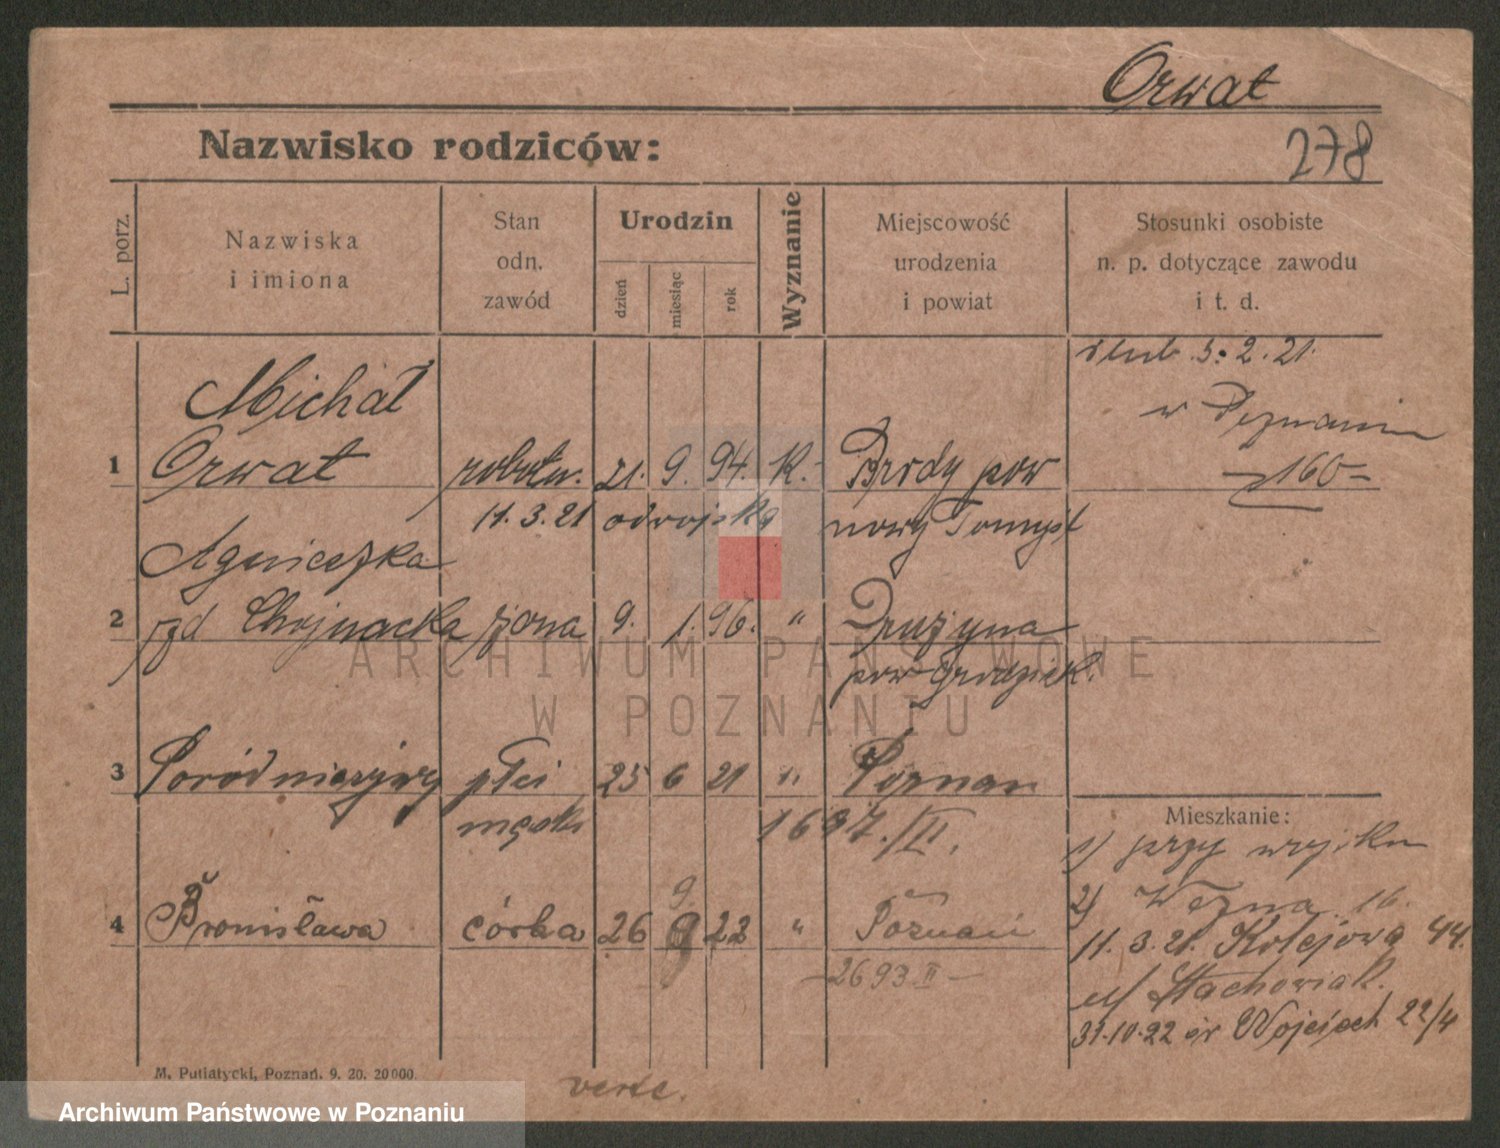 Orwat
Nazwisko rodziców:
278
L. porz.
Nazwiska
i imiona
Stan
odn.
zawód
Urodzin
dzień
miesiąc
rok
Wyznanie
Miejscowość
urodzenia
i powiat
Stosunki osobiste
n. p. dotyczące zawodu
i t. d.
ślub 5.2.21.
w Poznaniu
160
1 Michał
Orwat robotn. 21. 9. 94. K. Brody pow
11.3.21 od wojska nowy Tomyśl
Agnieszka
2 rzd Chojnacka żona 9. 1. 96. " Drużyna
pow Grodzisk.
3 Poród nieżywy płci 25 6 21 " Poznań
męsk 1697./II.
4 Bronisława córka 26 9 22 " Poznań
9.
2693 II
Mieszkanie:
1) przy wojsku
2) Wozna 16.
11.3.21. Kolejowa 44.
u/ Stachowiak.
31.10.22 św Wojciech 22/4
M. Putiatycki, Poznań. 9. 20. 20000.
verte.
ARCHIWUM PAŃSTWOWE
W POZNANIU
Archiwum Państwowe w Poznaniu